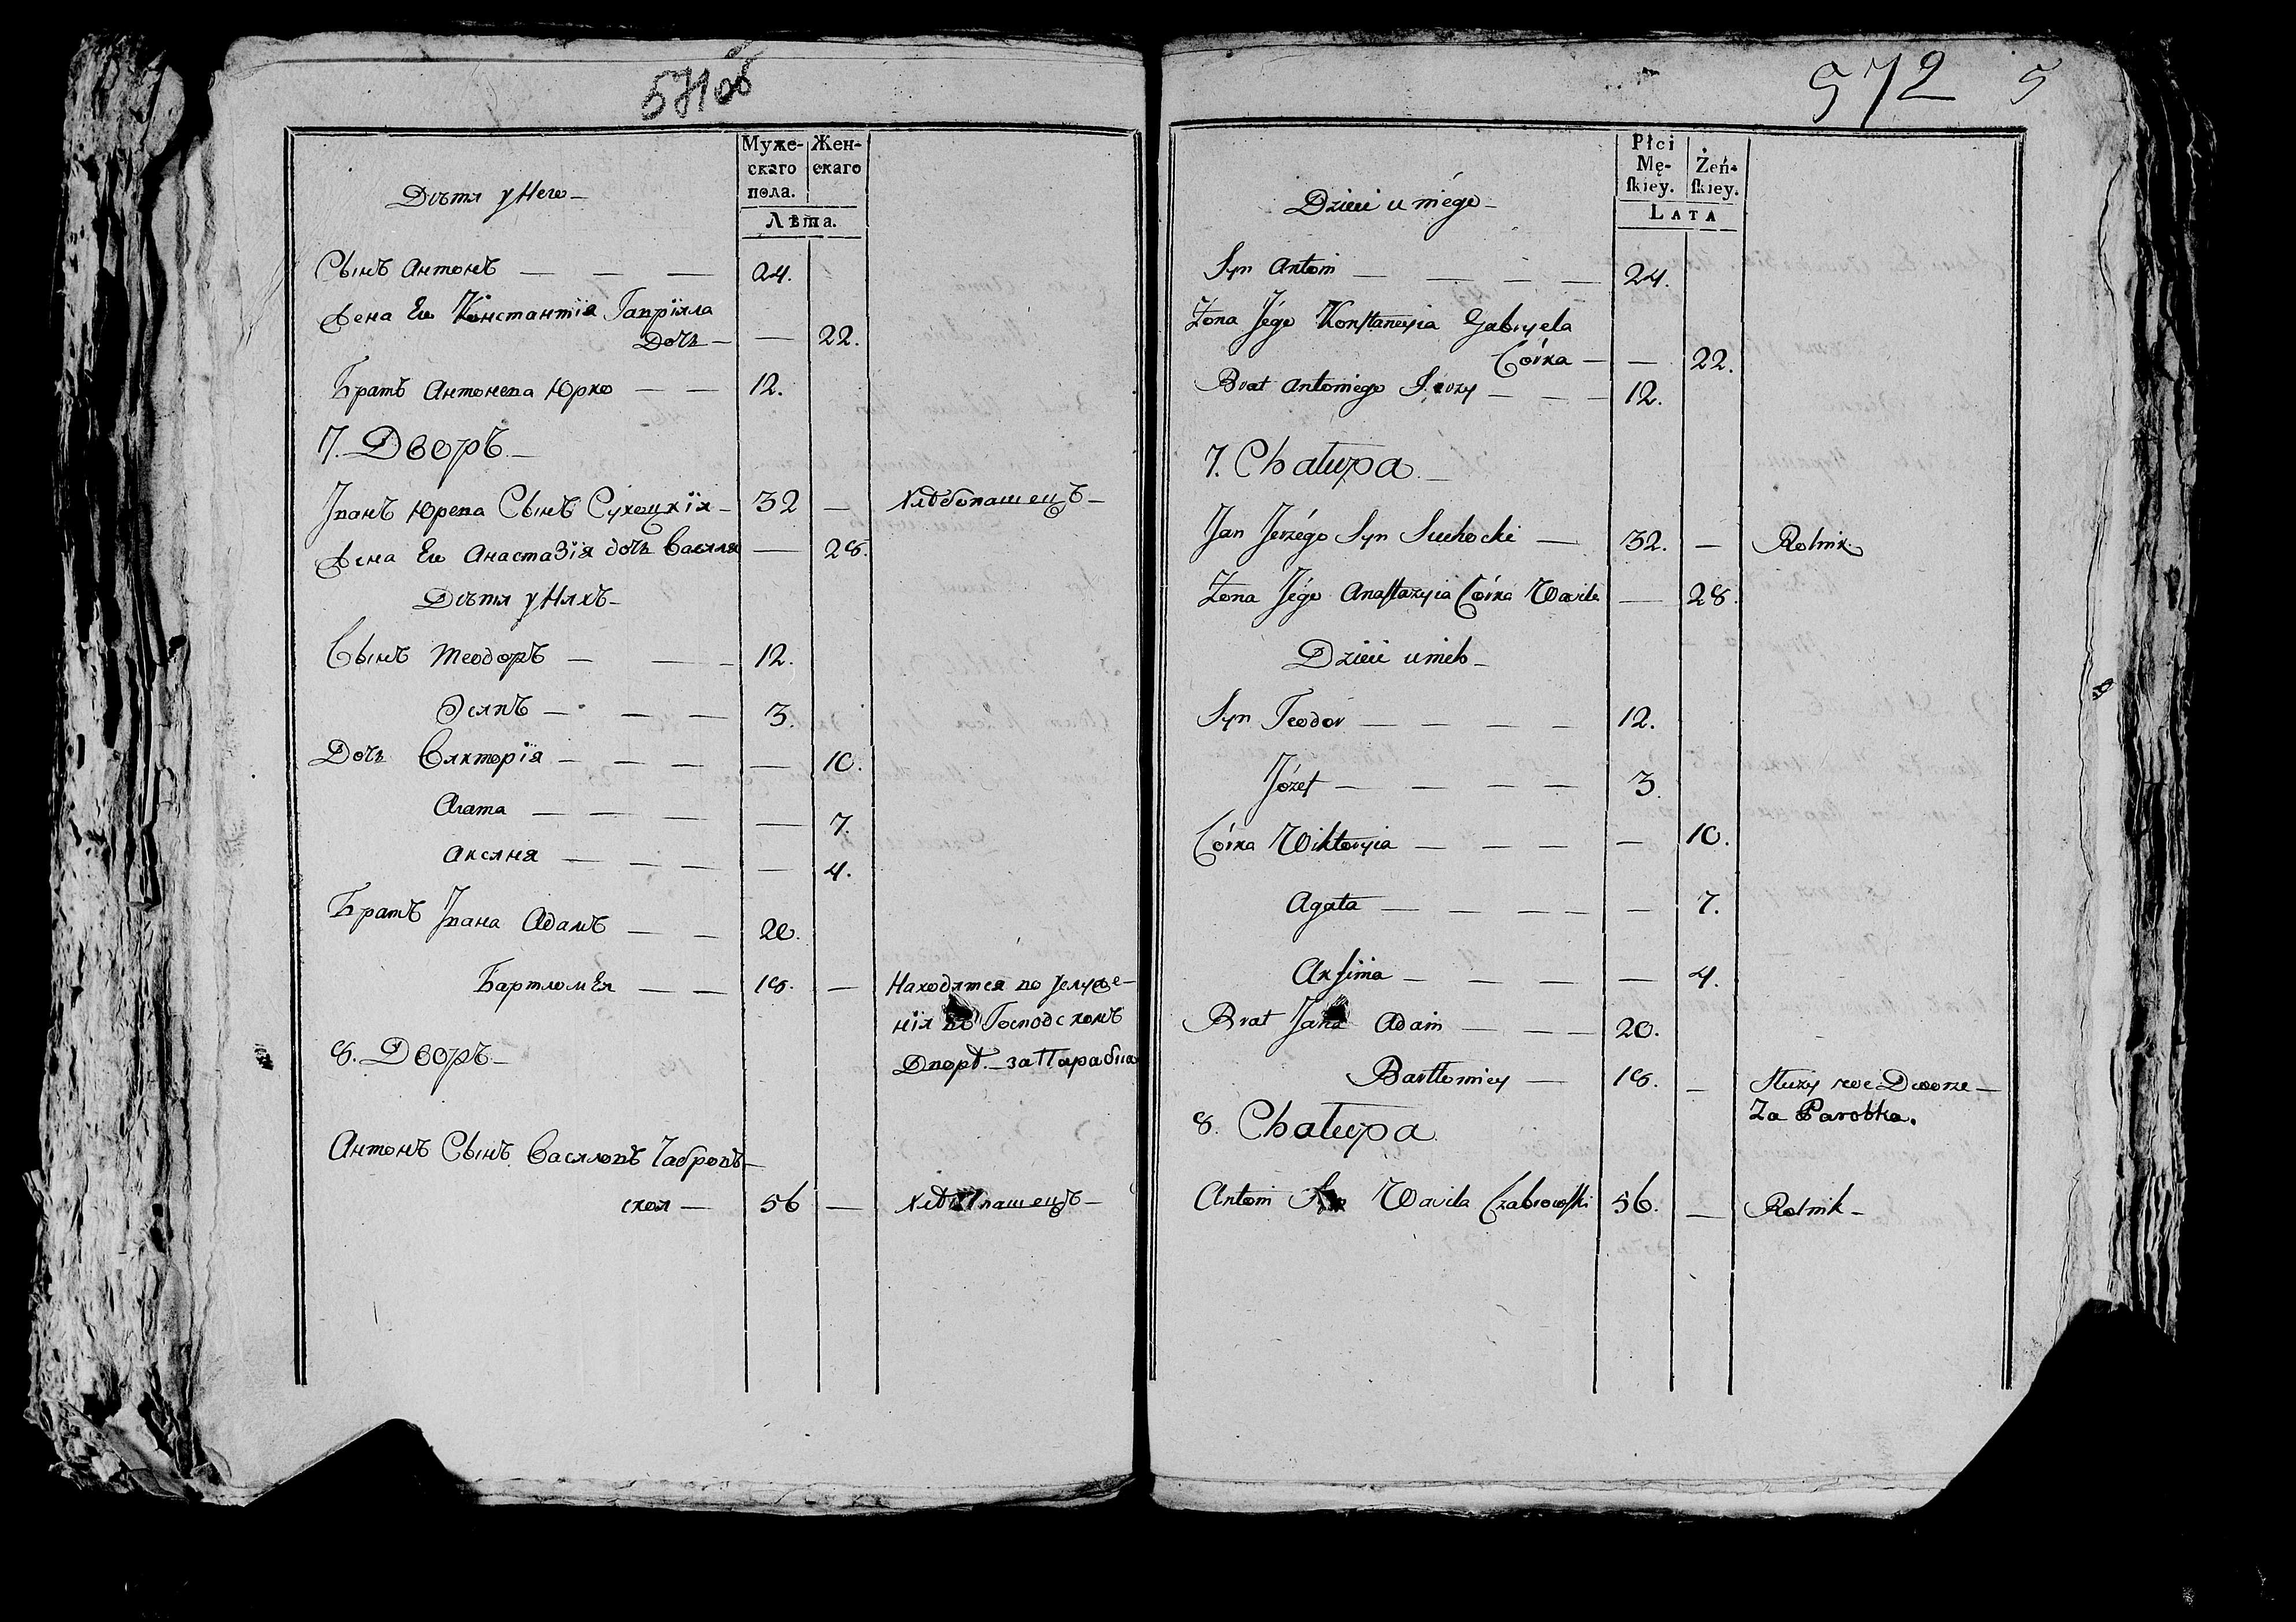 571об
Муже- Жен-
скаго скаго
пола.
Лѣта.
Дѣти у Него —
Сынъ Антонъ — — — 24.
Жена Его Константія Гавріила
Дочь — — 22.
Братъ Антонева Юрко — — 12.
7. Дворъ. —
Іванъ Юрева Сынъ Сухоцкій — 32 — Хлѣбопашецъ —
Жена Ег Анастазія дочь Василя — 28.
Дѣти у Нихъ —
Сынъ Теодоръ — — — 12.
Осипъ — — — 3.
Дочь Викторія — — — — 10.
Агата — — — — 7.
Аксиня — — — — — 4.
Братъ Івана Адамъ — — 20.
Бартломѣи — — 18. — Находится во услуже-
нія въ Господскомъ
8. Дворъ — Дворѣ. — за Паробка
Антонъ Сынъ Василовъ Чабровъ —
ской — 56 — Хлѣбопашецъ —
572 5
Płci
Mę- Żeń-
skiey. skiey.
LATA
Dzieci u niégo —
Syn Antoni — — — — 24.
Żona Jégo Konstancyia Gabryela
Córka — — 22.
Brat Antoniego Jerzy — — — 12.
7. Chałupa. —
Jan Jerzégo Syn Suchocki — 32. — Rolnik
Żona Jégo Anastazyia Córka Wasila — 28.
Dzieci u nich —
Syn Teodor — — — — 12.
Józef — — — — 3
Córka Wiktoryia — — — — — 10.
Agata — — — — — 7.
Aksinia — — — — 4.
Brat Jana Adam — — — 20.
Bartłomiey — 18. — Służy we Dworze —
Za Parobka.
8. Chałupa.
Antoni Syn Wasila Czabrowski 56. — Rolnik —